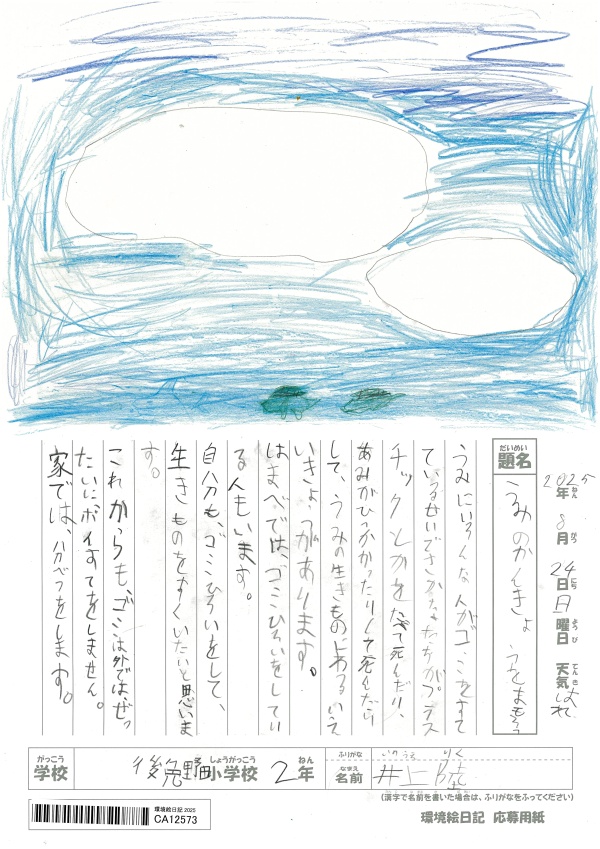 2025年 8月 24日 日曜日 天気 はれ
ねん がつ にち ようび てんき
だいめい
題名
うみのかんきょうをまもろう
うみにいろんな人がゴミをすて
ているせいでさかなたちがプラス
チックとかをたべて死んだり、
あみがひっかかったりして死んだり
して、うみの生きものにわるいえ
いきょうがあります。
はまべでは、ゴミひろいをしてい
る人もいます。
自分も、ゴミひろいをして、
生きものをすくいたいと思いま
す。
これからも、ゴミは外では、ぜっ
たいにポイすてをしません。
家では、分べつをします。
がっこう
学校
しょうがっこう
小学校
ねん
2年
ふりがな
いのうえ りく
なまえ
名前
井上 陸
(漢字で名前を書いた場合は、ふりがなをふってください)
環境絵日記 2025
CA12573
環境絵日記 応募用紙